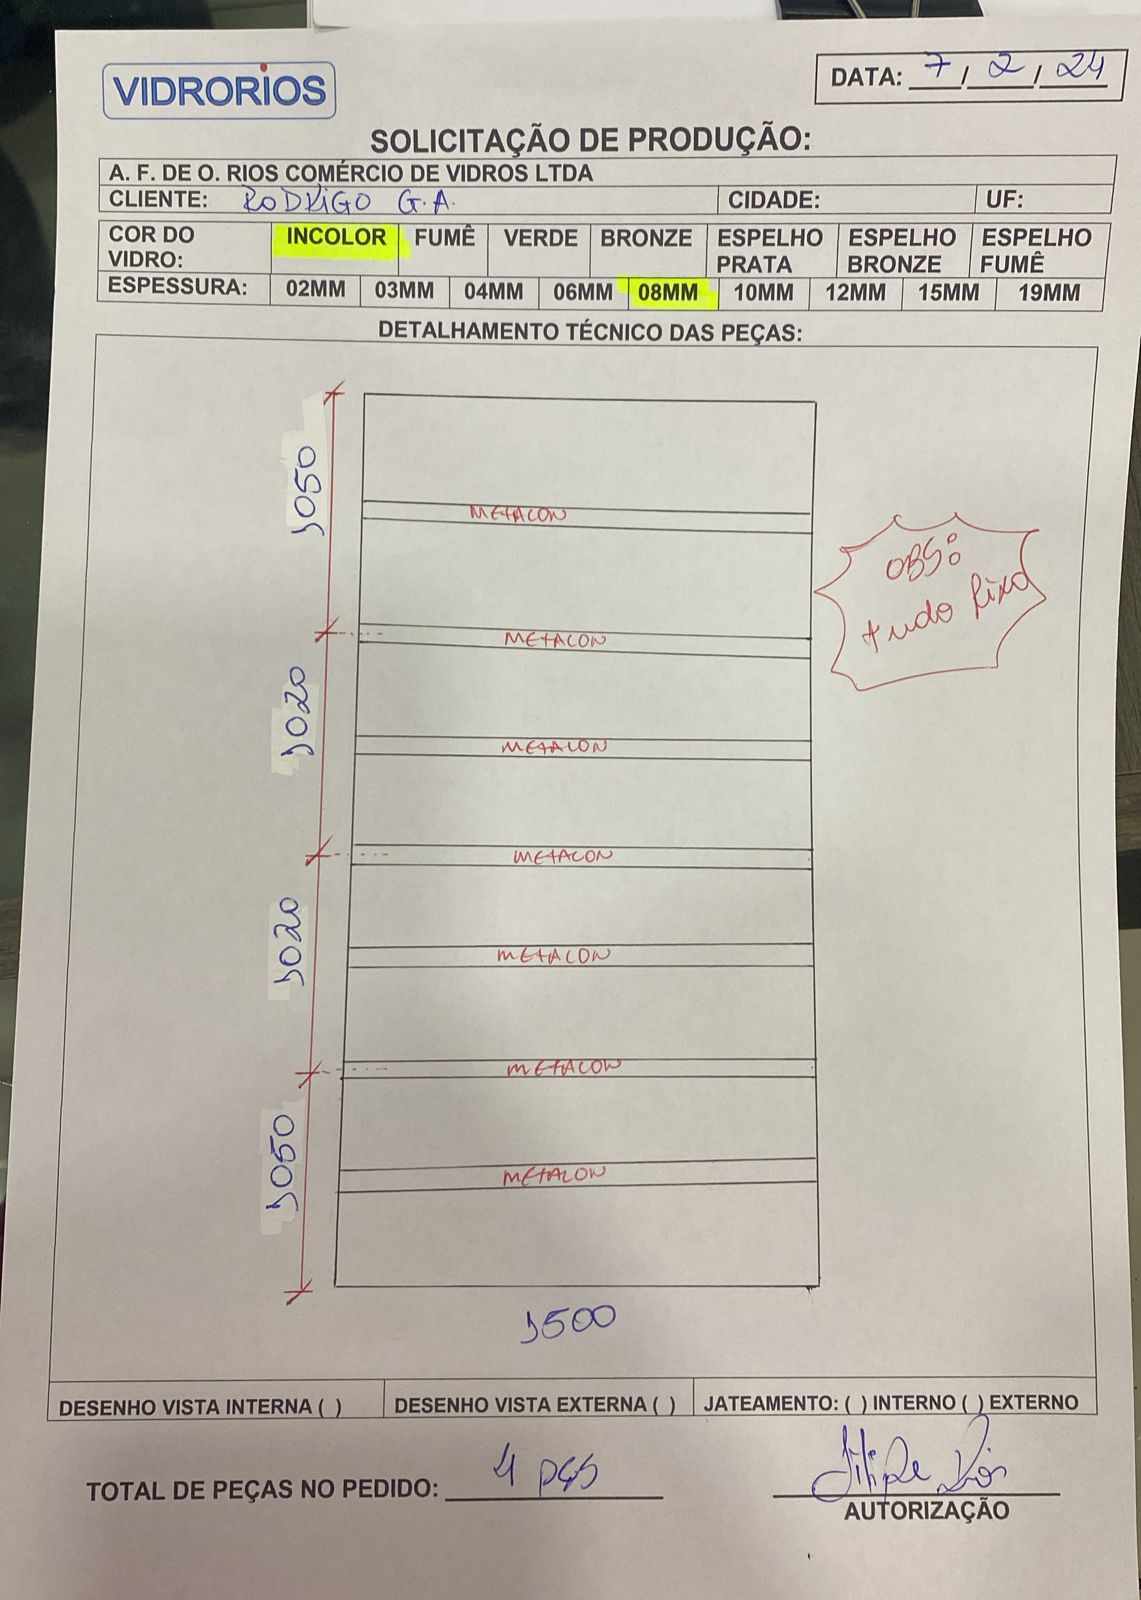 VIDRORIOS
DATA: 7 / 2 / 24
SOLICITAÇÃO DE PRODUÇÃO:
A. F. DE O. RIOS COMÉRCIO DE VIDROS LTDA
CLIENTE: RODRIGO G.A. CIDADE: UF:
COR DO VIDRO: INCOLOR FUMÊ VERDE BRONZE ESPELHO PRATA ESPELHO BRONZE ESPELHO FUMÊ
ESPESSURA: 02MM 03MM 04MM 06MM 08MM 10MM 12MM 15MM 19MM
DETALHAMENTO TÉCNICO DAS PEÇAS:
1050
METALON
OBS:
tudo fixo
METALON
1020
METALON
METALON
1020
METALON
METALON
1050
METALON
1500
DESENHO VISTA INTERNA ( ) DESENHO VISTA EXTERNA ( ) JATEAMENTO: ( ) INTERNO ( ) EXTERNO
TOTAL DE PEÇAS NO PEDIDO: 4 pçs
Filipe Rios
AUTORIZAÇÃO